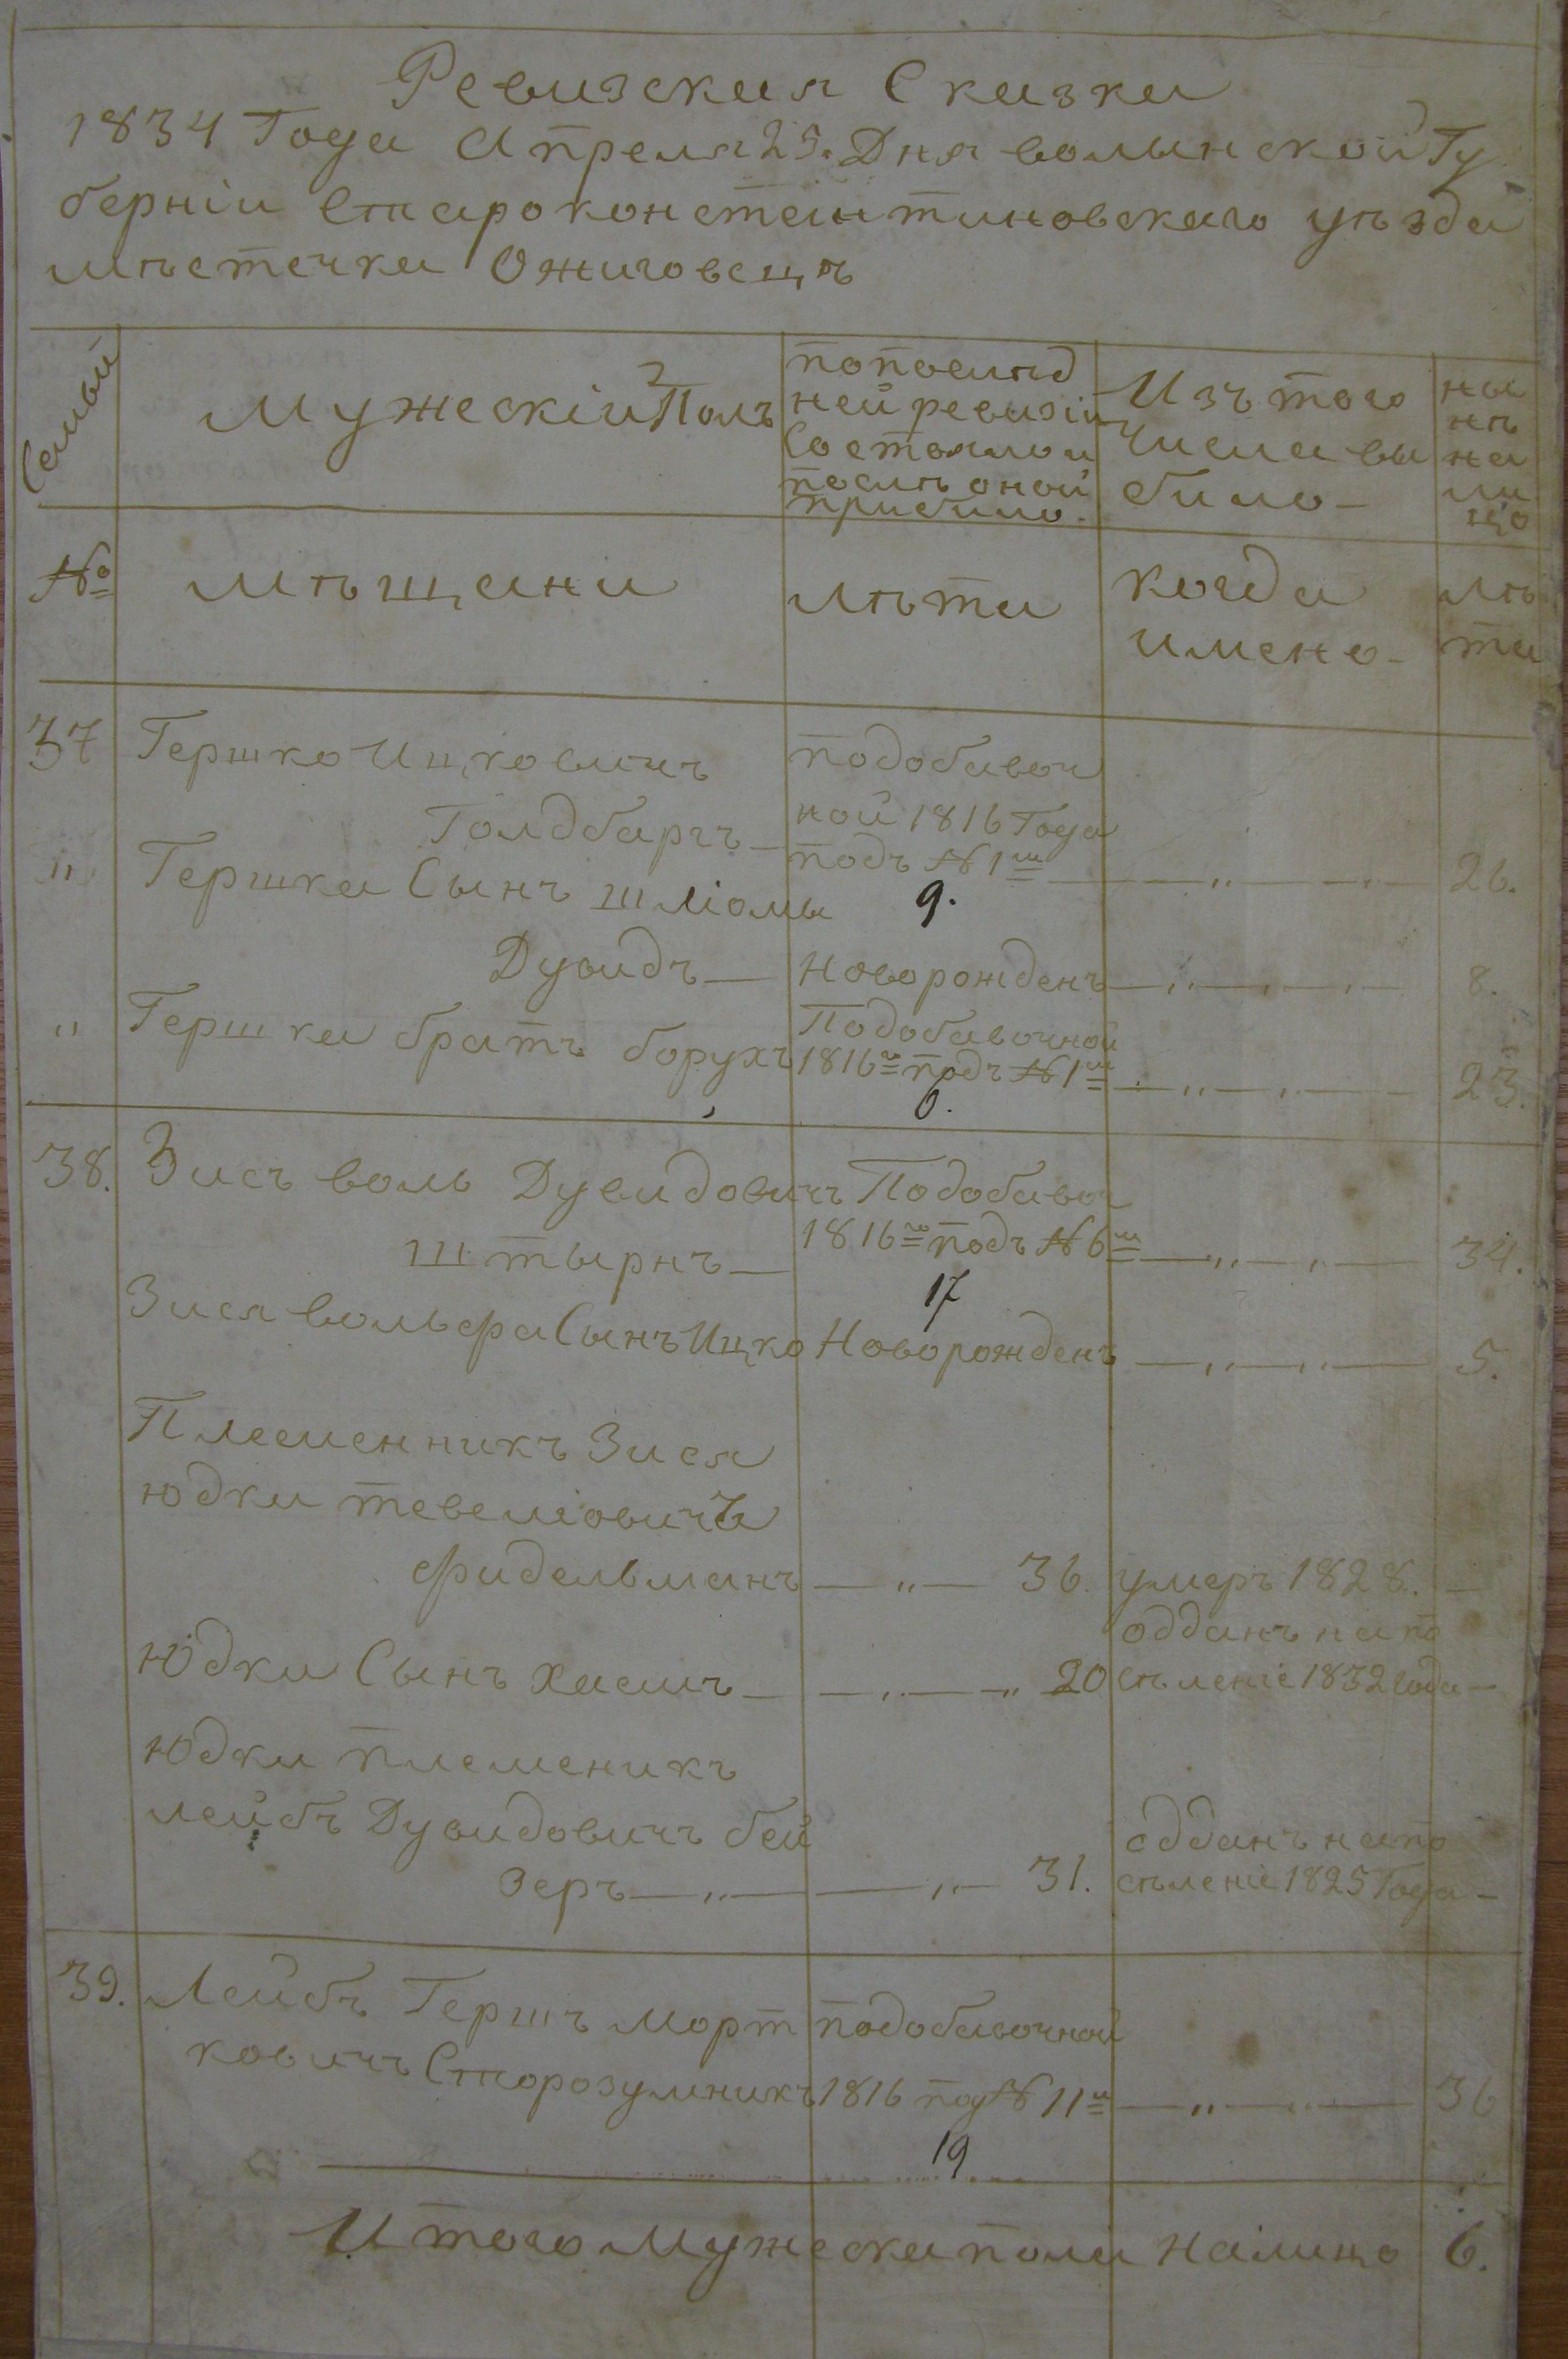 Ревизская Сказка
1834 Года Апреля 25. Дня волынской Гу
бернiи Староконстантиновскаго уѣзда
мѣстечка Ожиговецъ
Семьи
Мужескiй Полъ
2
попослѣд
ней ревизiи
Состояло и
послѣ оной
прибило.
Изъ того
числа вы
било –
ны
нѣ
на
ли
цо
№
мѣщани
лѣта
когда
имено –
лѣ
та
37 Гершко Ицковичъ
Голдбаргъ –
подобавоч
ной 1816 Года
подъ № 1м — „ — „ — 26.
9.
„ Гершка Сынъ Шлiомы
Дувидъ — Новорожденъ — „ — „ — „ — 8.
„ Гершка братъ борухъ
Подобавочной
1816г подъ № 1м — „ — „ — 23.
6.
38. Зись воль Дувидовичъ
Штырнъ —
Подобавоч
1816го подъ № 6м — „ — „ — 34.
17
Зися вольфа Сынъ Ицко Новорожденъ — „ — „ — 5.
Племенникъ Зися
юдки тевелiовичъ
фидельманъ — „ — 36. умеръ 1828. —
Юдки Сынъ хаимъ — — „ — „ 20
одданъ напо
сѣленiе 1832 года —
Юдки племеникъ
лейбъ Дувидовичъ бей
зеръ — „ — — „ — 31.
одданъ напо
сѣленiе 1825 Года —
39. Лейбъ Гершъ морт
ковичъ Сторозумникъ
подобавочной
1816 под № 11м — „ — „ — 36
19
Итого Мужеска пола налицо 6.